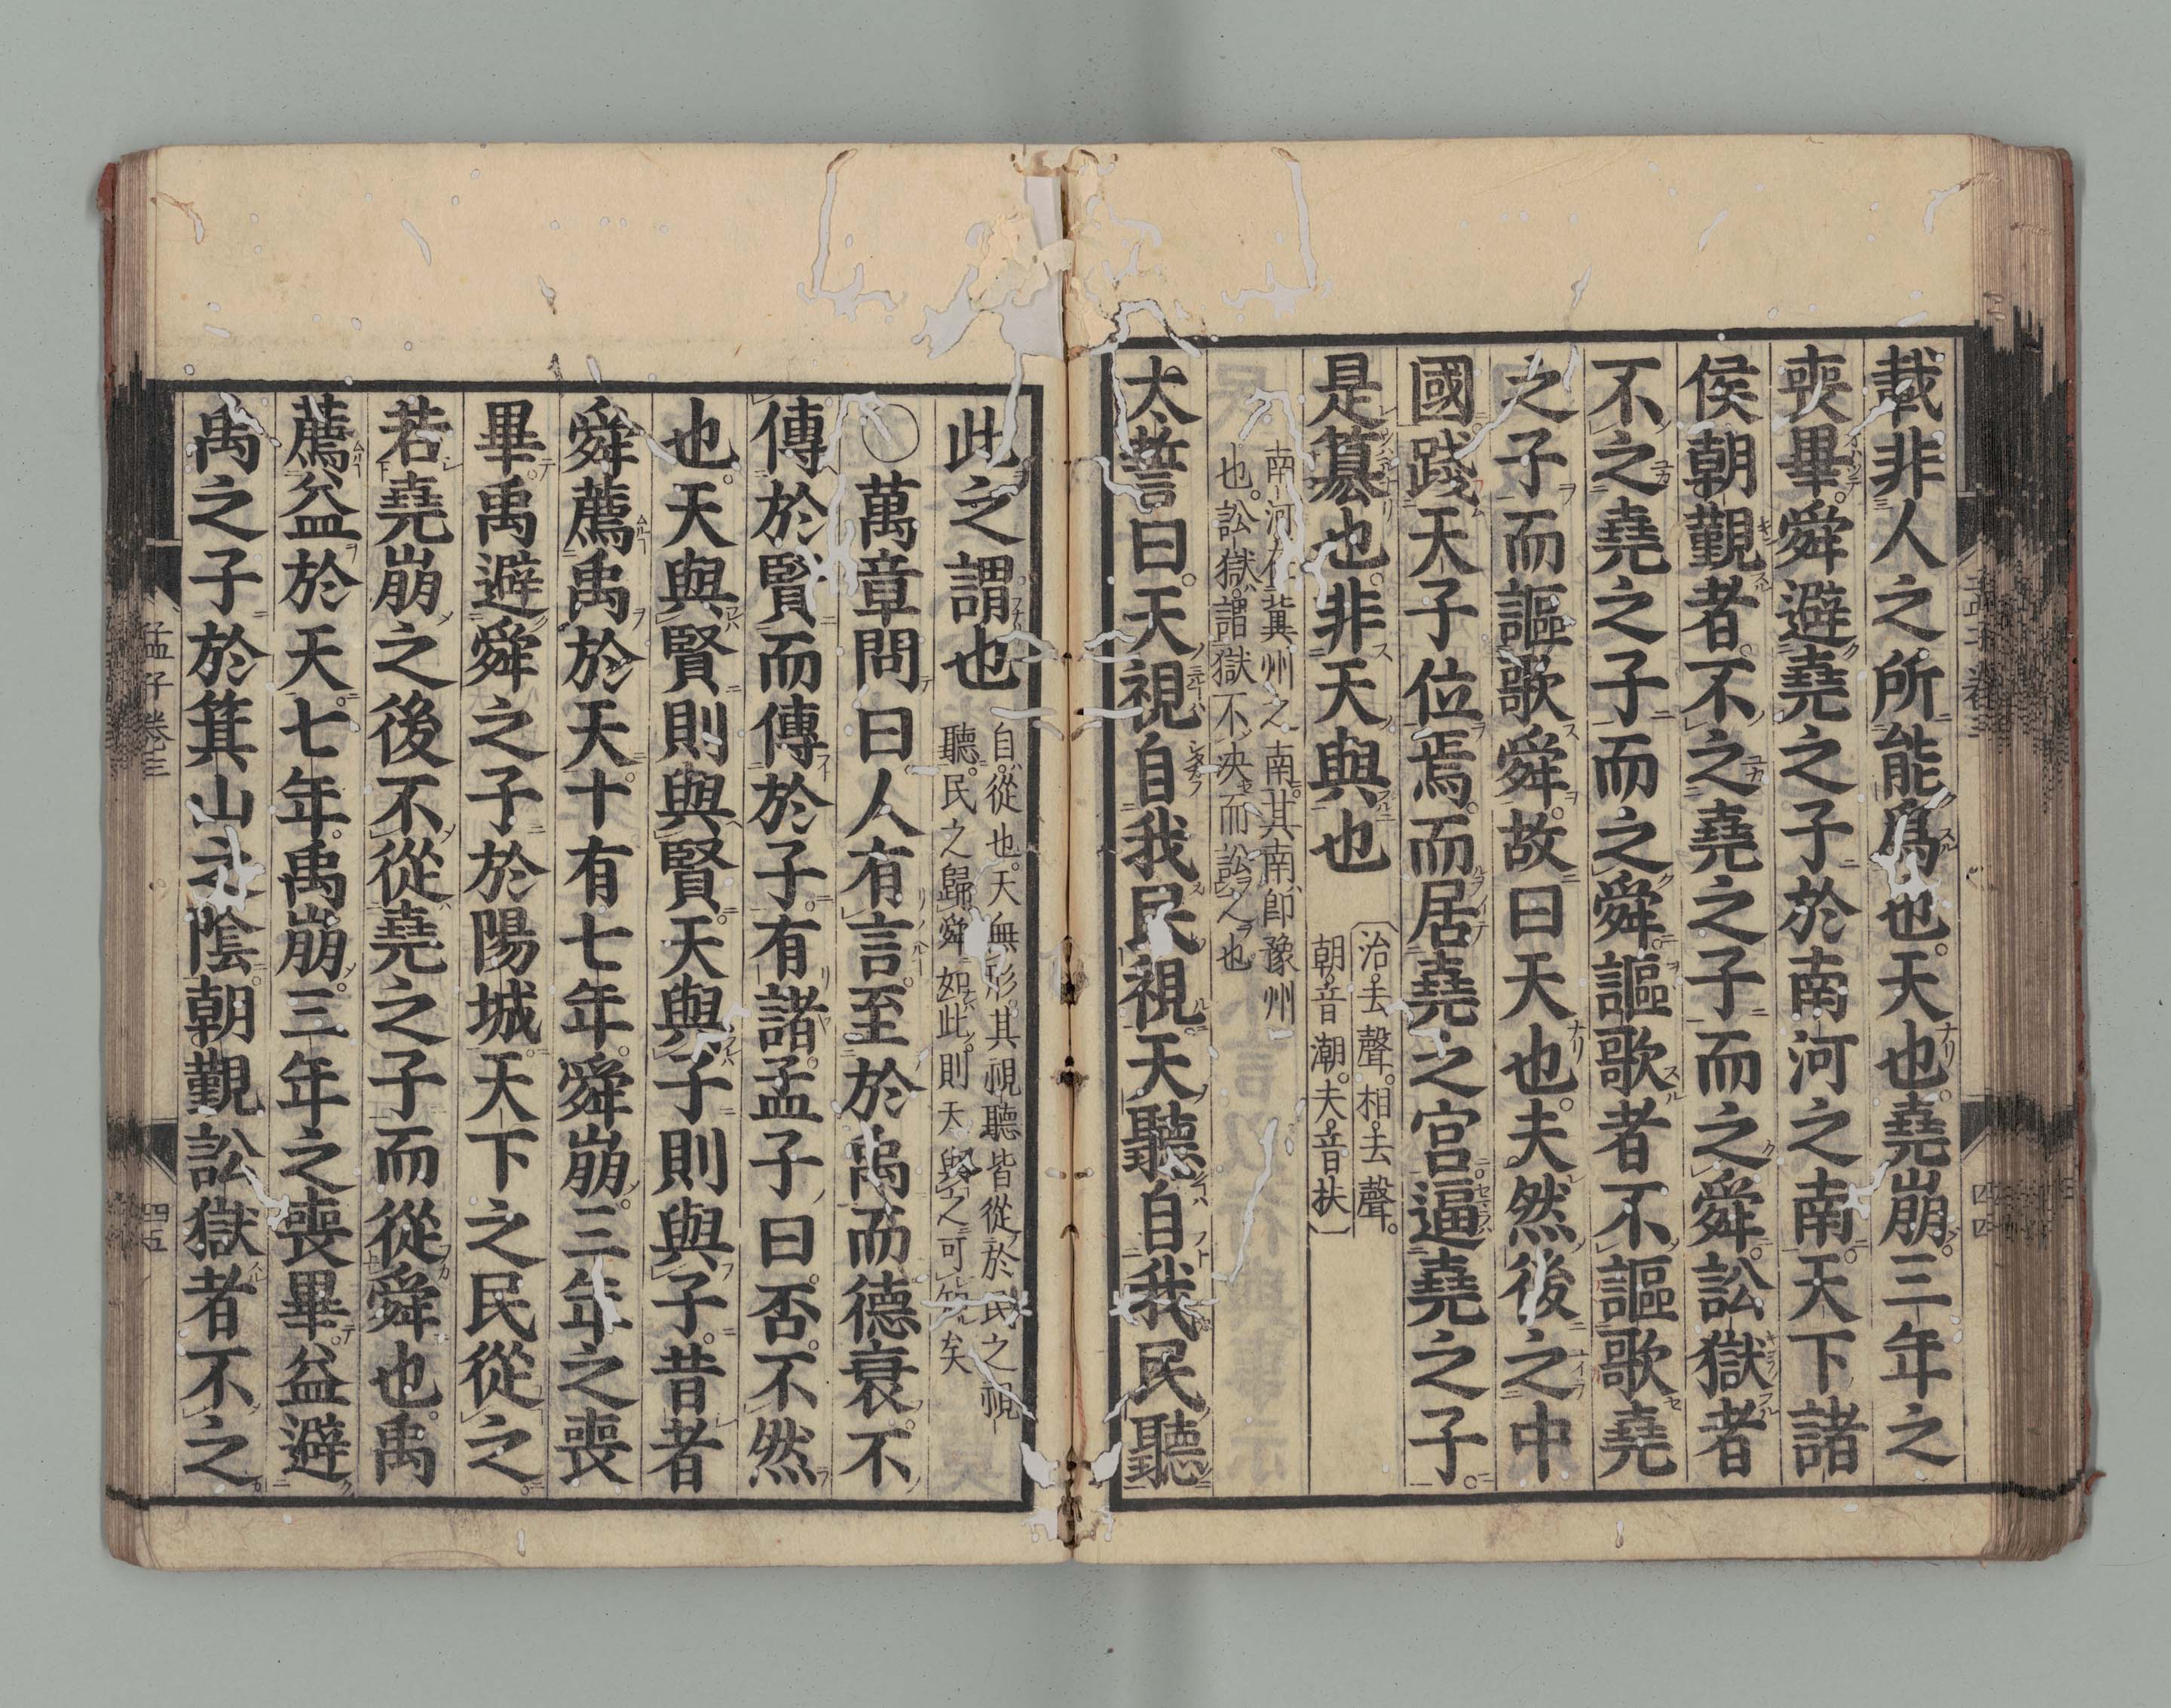 載非人之所能爲也。天也。堯崩。三年之
喪畢。舜避堯之子於南河之南。天下諸
侯朝覲者。不之堯之子而之舜。訟獄者
不之堯之子而之舜。謳歌者不謳歌堯
之子而謳歌舜。故曰天也。夫然後之中
國踐天子位焉。而居堯之宮逼堯之子。
是簒也。非天與也
治去聲。相去聲。
朝音潮。夫音扶
南河在冀州之南。其南卽豫州
也。訟獄。謂獄不決而訟之也
太誓曰。天視自我民視。天聽自我民聽
此之謂也
自。從也。天無形。其視聽皆從於民之視
聽。民之歸舜如此。則天與之可知矣
○萬章問曰。人有言。至於禹而德衰。不
傳於賢而傳於子。有諸。孟子曰。否。不然
也。天與賢則與賢。天與子則與子。昔者
舜薦禹於天。十有七年。舜崩。三年之喪
畢。禹避舜之子於陽城。天下之民從之。
若堯崩之後不從堯之子而從舜也。禹
薦益於天。七年。禹崩。三年之喪畢。益避
禹之子於箕山之陰。朝覲訟獄者不之
孟子卷三
四四
孟子卷三
四五